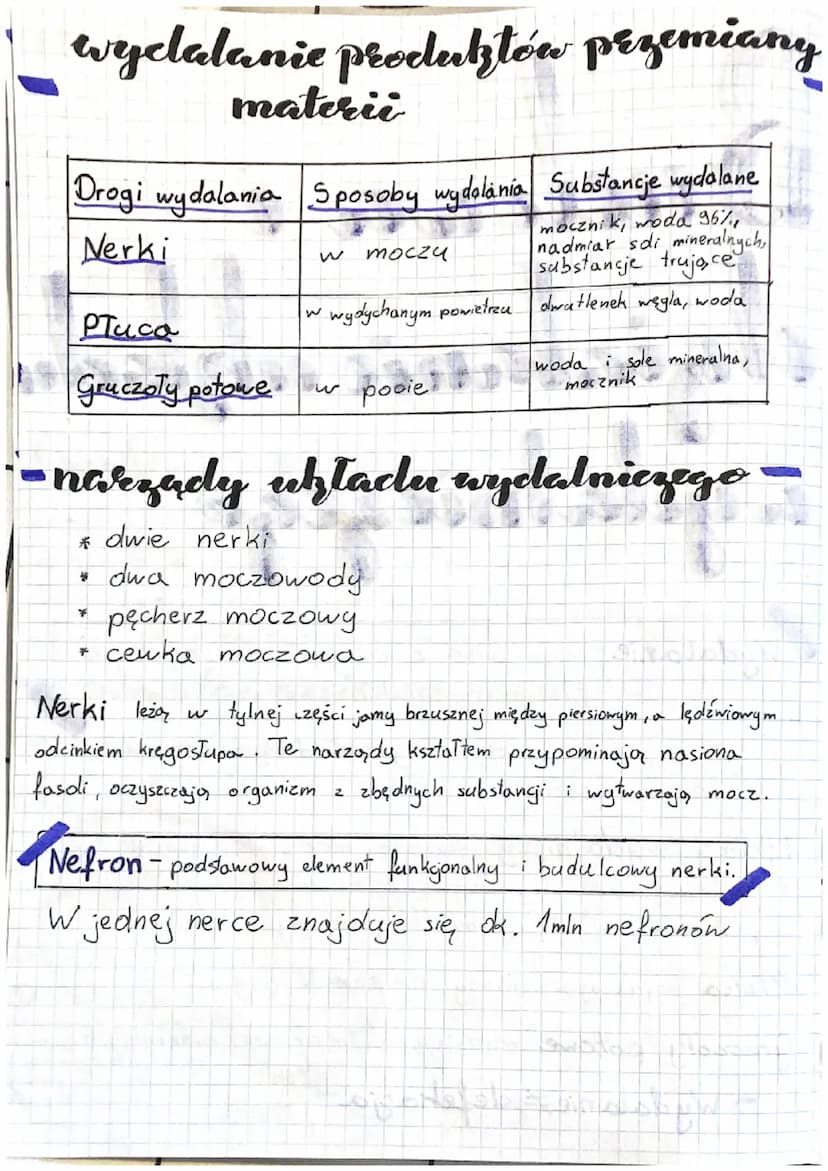 wydalanie produktów przemiany
materii
Drogi wydalania | Sposoby wydalania | Substancje wydalane
Nerki | w moczu | mocznik, woda 96%,
nadmiar soli mineralnych,
substancje trujące
Płuca | w wydychanym powietrzu | dwutlenek węgla, woda
Gruczoły potowe | w pocie | woda i sole mineralna,
mocznik
- narządy układu wydalniczego -
* dwie nerki
* dwa moczowody
* pęcherz moczowy
* cewka moczowa
Nerki leżą w tylnej części jamy brzusznej między piersiowym, a lędźwiowym
odcinkiem kręgosłupa. Te narządy kształtem przypominają nasiona
fasoli, oczyszczają organizm z zbędnych substancji i wytwarzają mocz.
Nefron - podstawowy element funkcjonalny i budulcowy nerki.
W jednej nerce znajduje się ok. 1mln nefronów